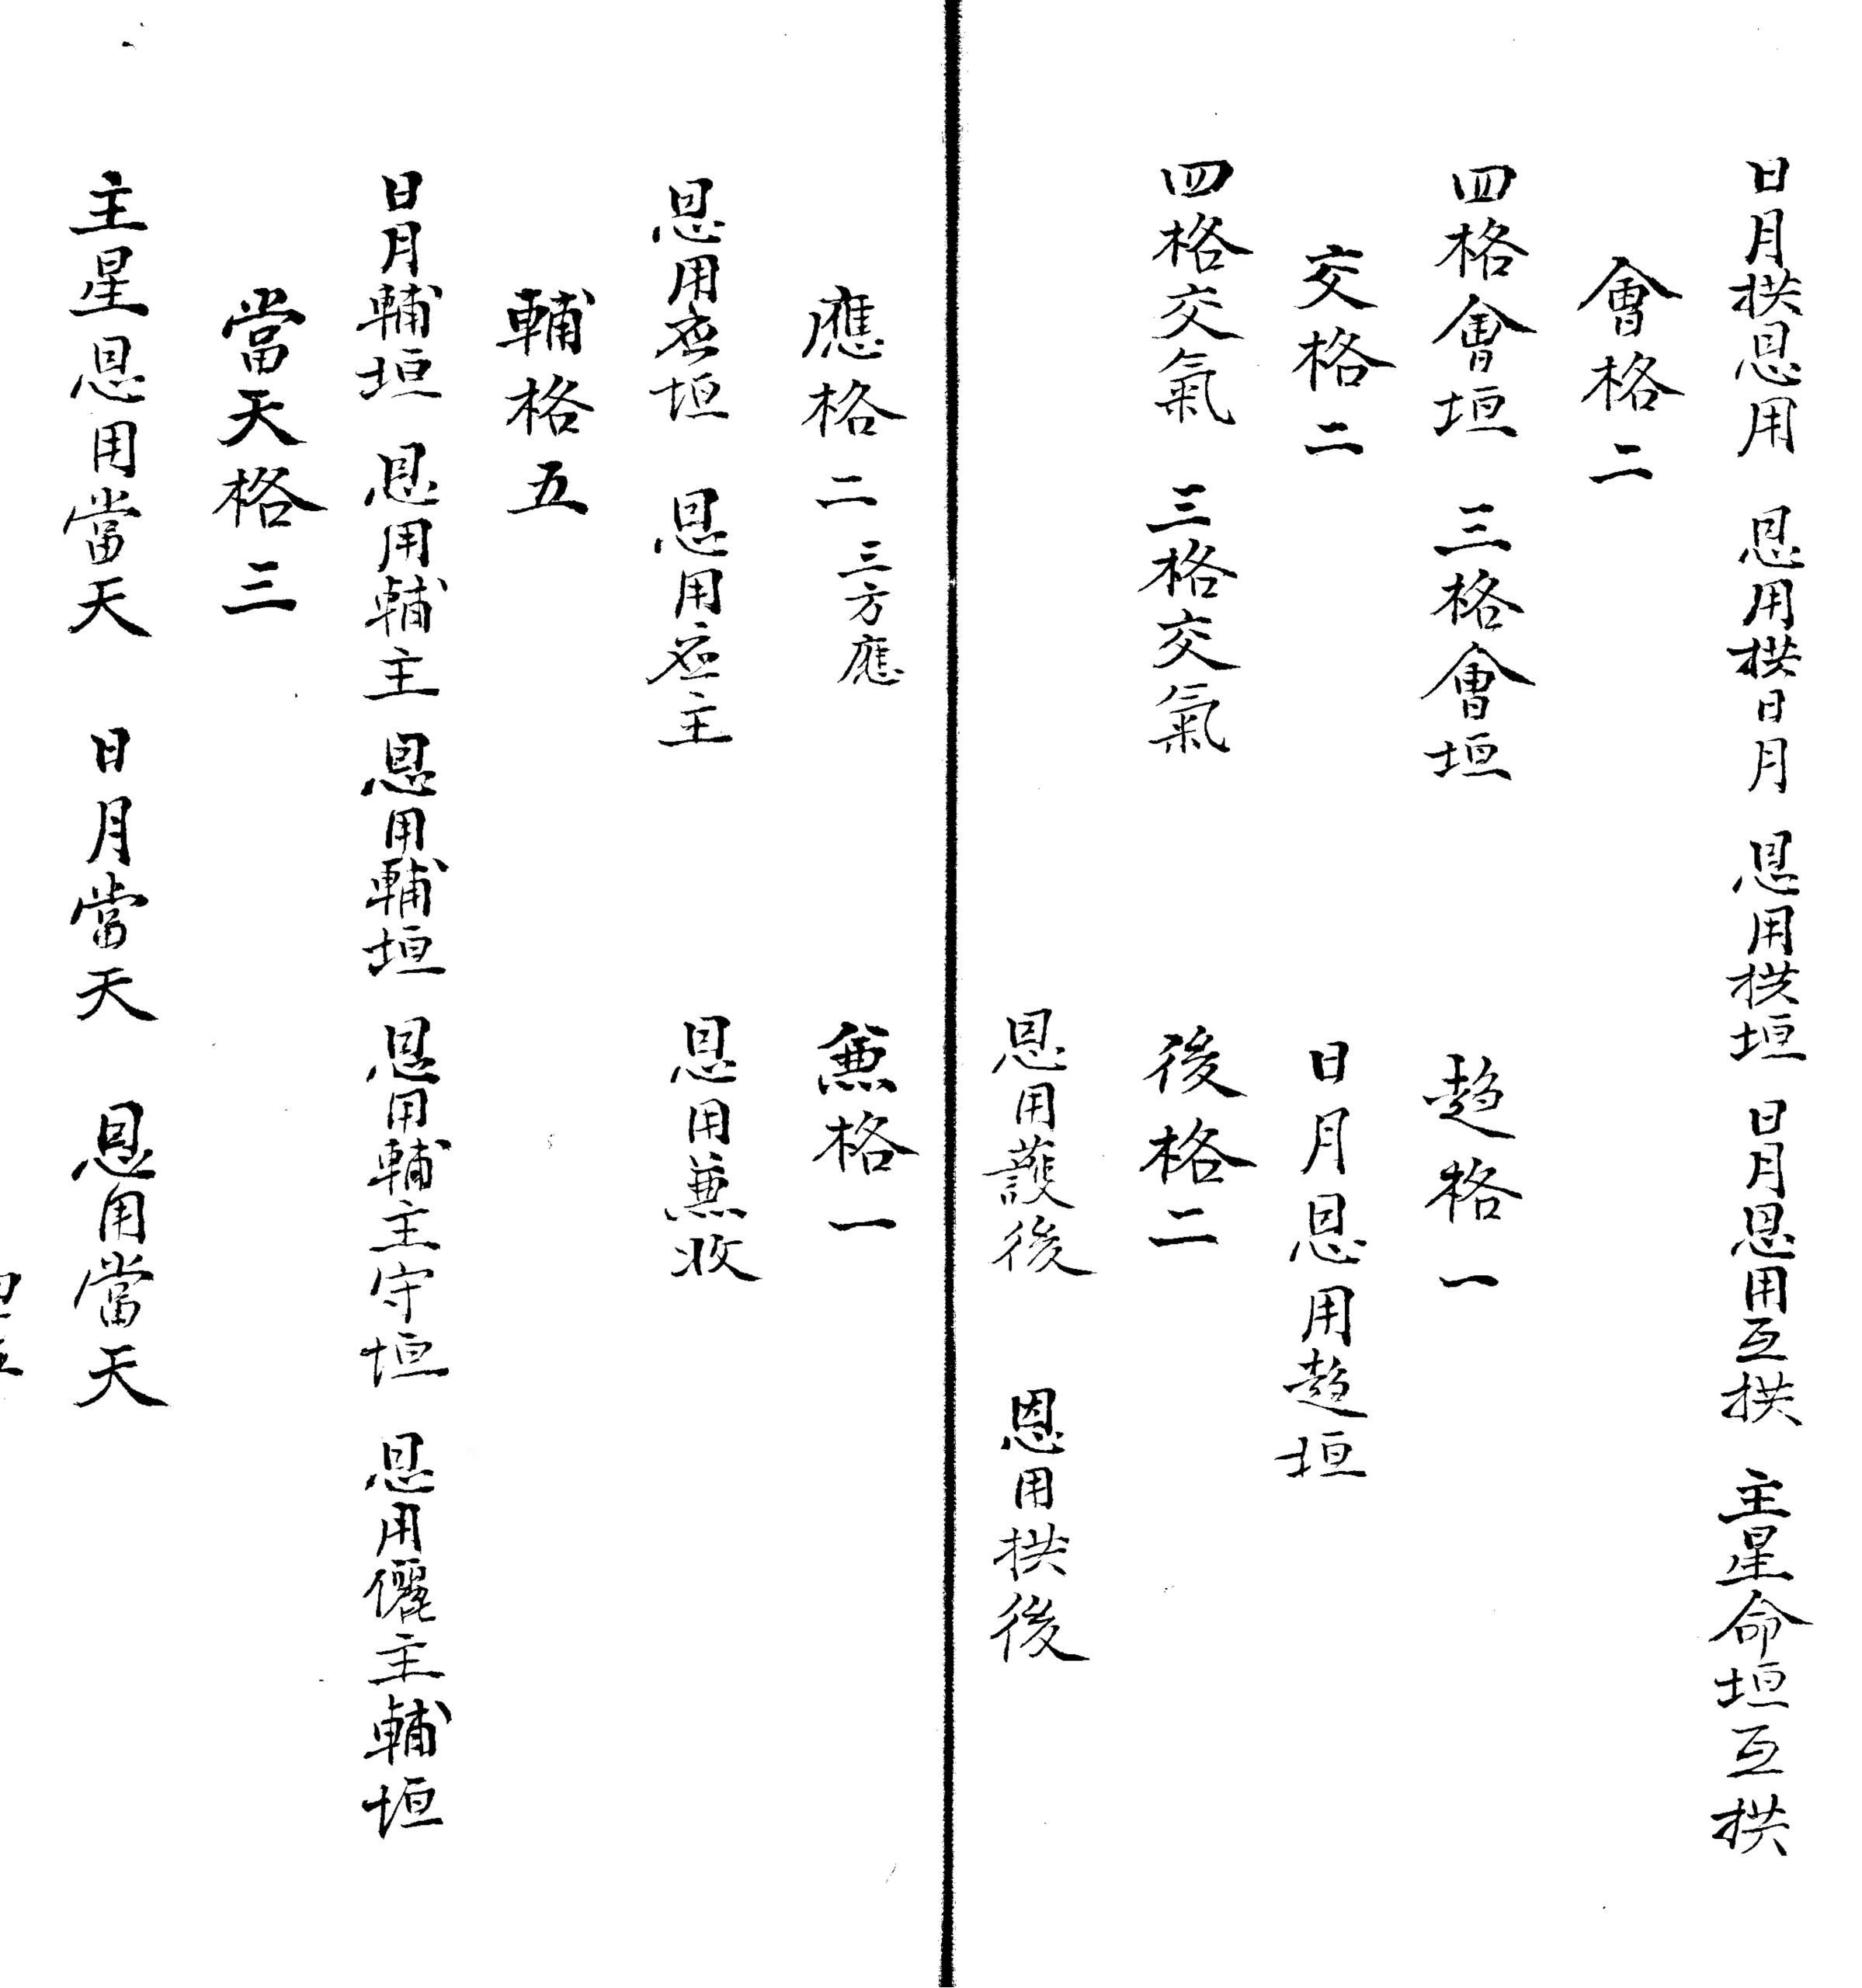 日月拱恩用　恩用拱日月　恩用拱垣　日月恩用互拱　主星命垣互拱
會格二
四格會垣　三格會垣　趋格一
交格二　日月恩用趋垣
四格交氣　三格交氣　後格二
恩用護後　恩用拱後
應格二　三方應　兼格一
恩用应垣　恩用应主　恩用兼收
輔格五
日月輔垣　恩用輔主　恩用輔垣　恩用輔主守垣　恩用儷主輔垣
當天格三
主星恩用當天　日月當天　恩用當天